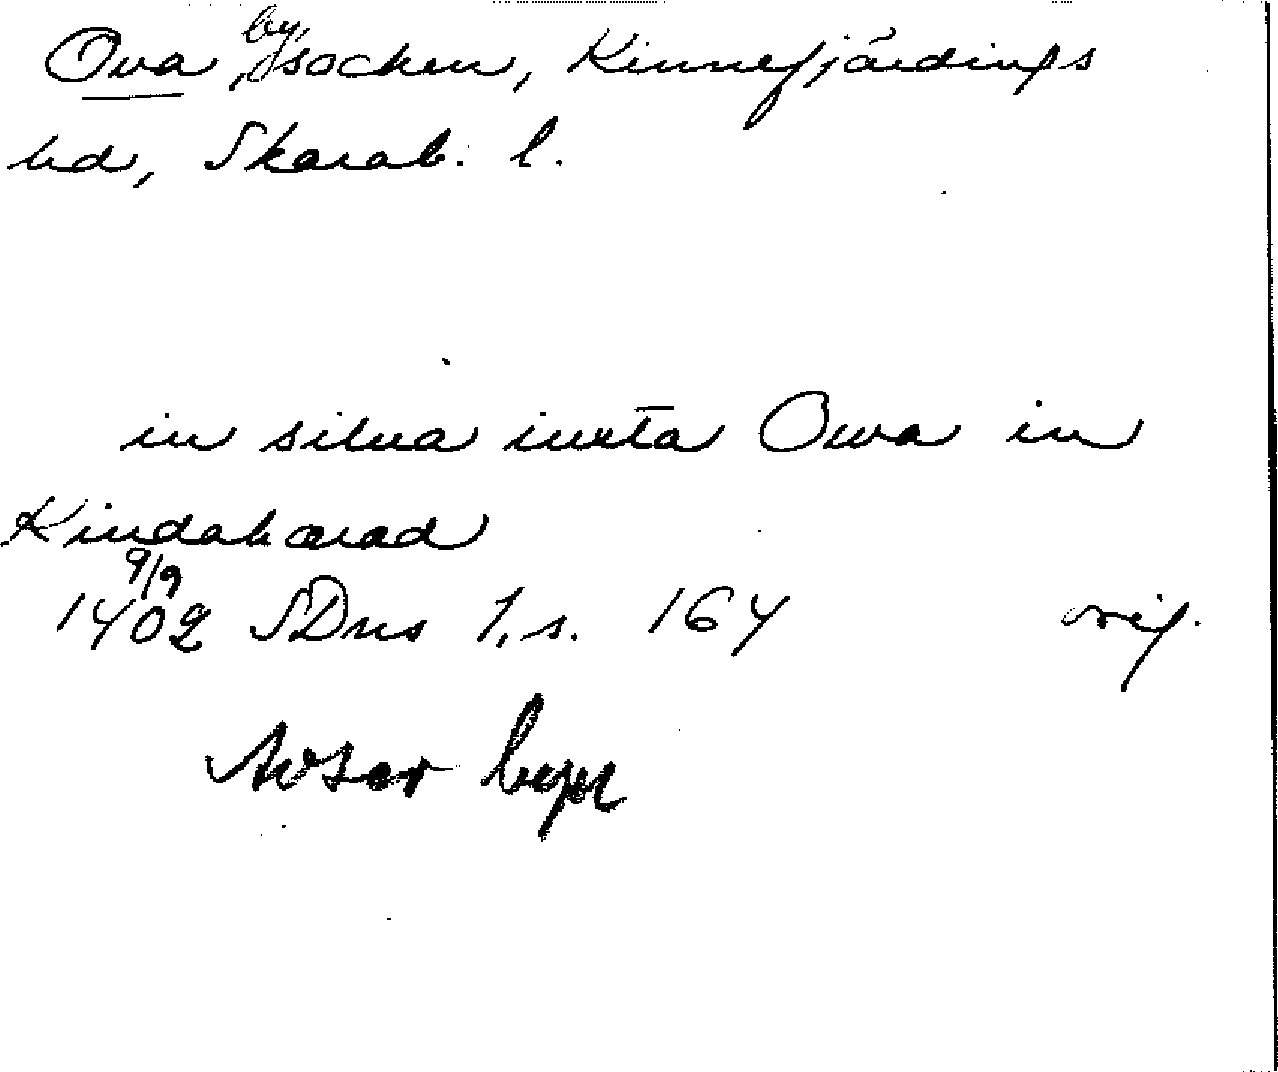 Ova by, socken, Kinnefjärdings
hd, Skarab. l.
in silua iuxta Owa in
Kindahærad
9/9
1402 SDns 1, s. 164 orig.
Avser byn